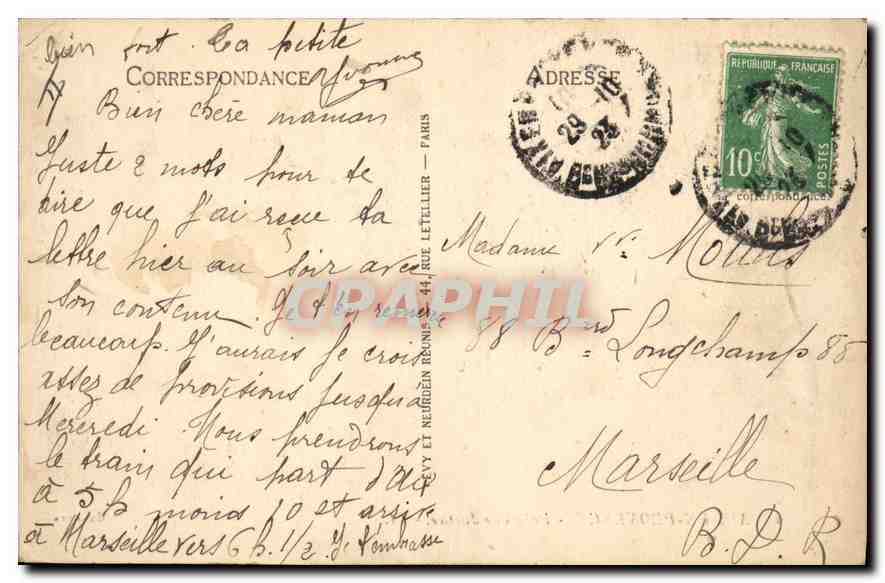 bien fort. Ta petite
Yvonne
CORRESPONDANCE
ADRESSE
Bien chère maman
Juste 2 mots pour te
dire que j'ai reçue ta
lettre hier au soir avec
son contenu. Je t'en remercie
beaucoup. J'aurais je crois
assez de provisions jusqu'à
Mercredi Nous prendrons
le train qui part d'Aix
à 5h moins 10 et arrive
à Marseille vers 6h. 1/2. Je t'embrasse
LEVY ET NEURDEIN REUNIS, 44, RUE LETELLIER — PARIS
REPUBLIQUE FRANÇAISE
10c
POSTES
correspondance
29 -10
23
10
Madame Vve
88 Bard Longchamp 88
Marseille
B. D. R
CPAPHIL